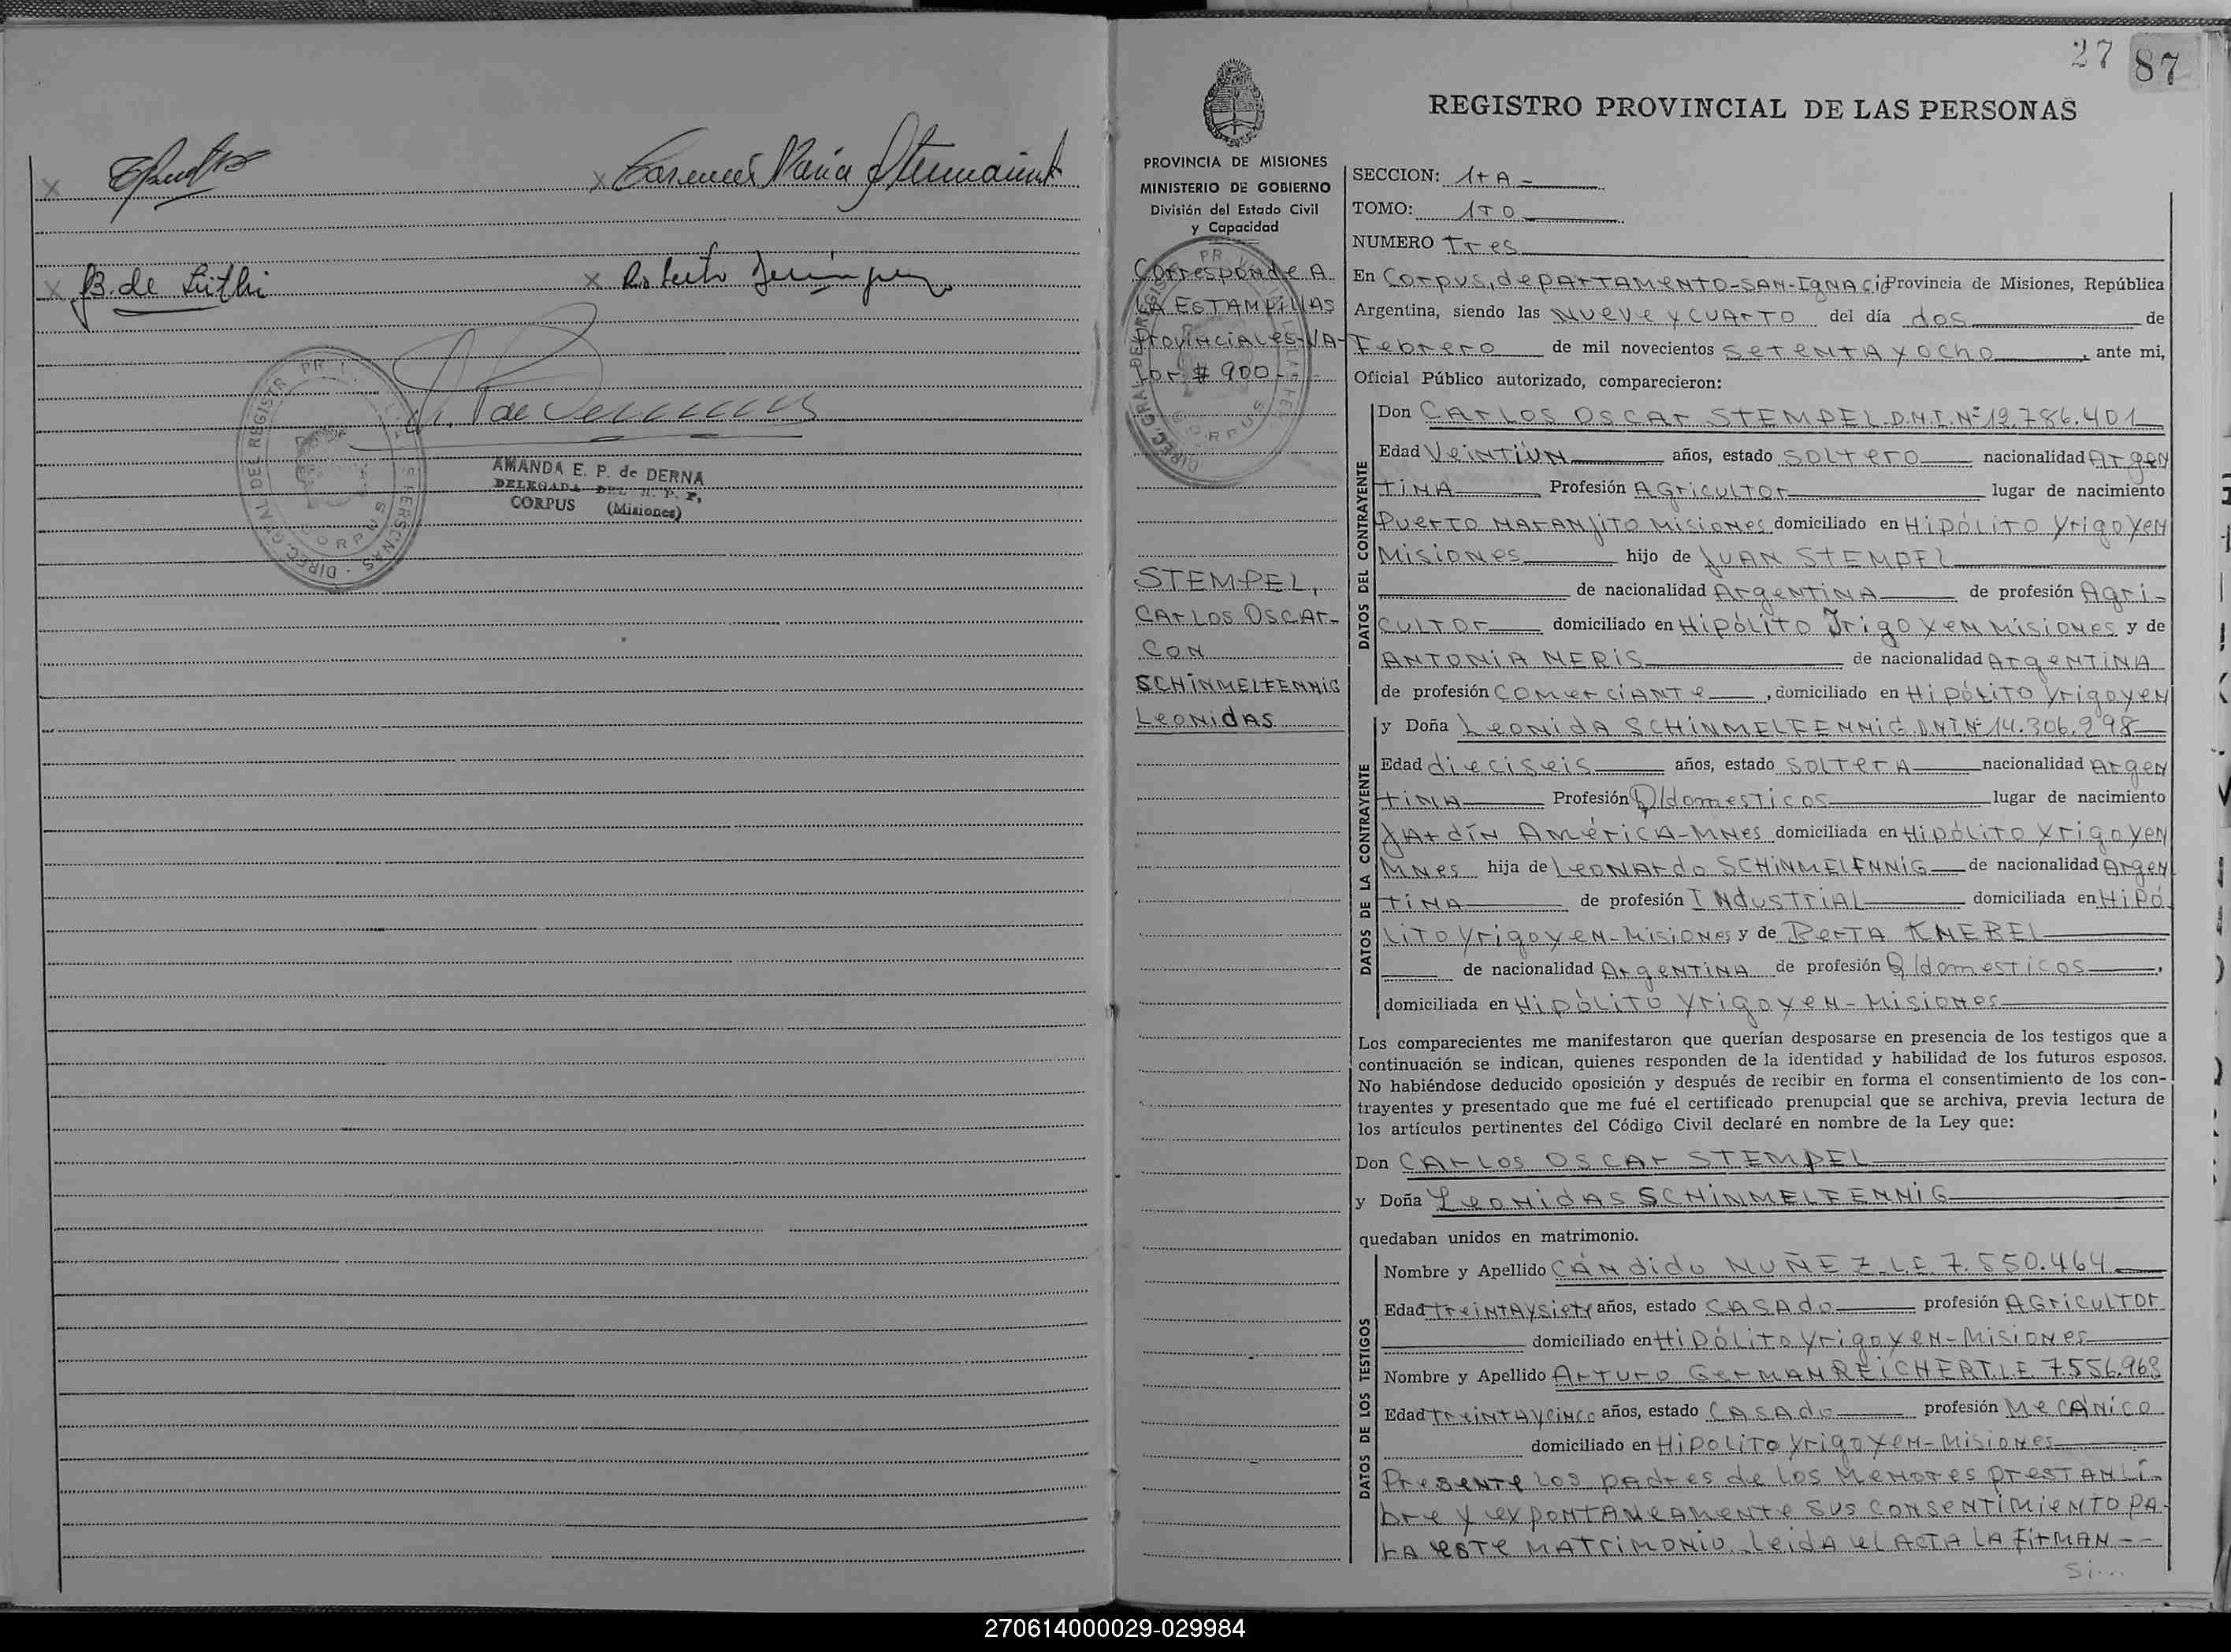 B. de Lüthi
Roberto
AMANDA E. P. de DERNA
DELEGADA DEL R. P. P,
CORPUS (Misiones)
27 87
REGISTRO PROVINCIAL DE LAS PERSONAS
PROVINCIA DE MISIONES
MINISTERIO DE GOBIERNO
División del Estado Civil
y Capacidad
Corresponde A
LA ESTAMPILLAS
Provinciales-VA-
Lor $ 900.-
STEMPEL,
CARLOS OSCAR-
CON
SCHINMELFENNIG
Leonidas
SECCION: 1rA-
TOMO: 1ro
NUMERO Tres
En Corpus, departamento-San-Ignacio Provincia de Misiones, República
Argentina, siendo las Nueve y cuarto del día dos de
Febrero de mil novecientos setenta y ocho, ante mi,
Oficial Público autorizado, comparecieron:
DATOS DEL CONTRAYENTE
Don CARLOS OSCAR STEMPEL-D.N.I.Nº12.786.401
Edad Veintiún años, estado soltero nacionalidad Argen
tina Profesión Agricultor lugar de nacimiento
Puerto Naranjito Misiones domiciliado en Hipólito Yrigoyen
Misiones hijo de JUAN STEMPEL
de nacionalidad Argentina de profesión Agri-
cultor domiciliado en Hipólito Irigoyen Misiones y de
ANTONIA NERIS de nacionalidad Argentina
de profesión Comerciante, domiciliado en Hipólito Yrigoyen
DATOS DE LA CONTRAYENTE
y Doña Leonida SCHINMELFENNIG.DNINº14.306.298
Edad dieciseis años, estado soltera nacionalidad Argen
tina Profesión Q/domesticos lugar de nacimiento
Jardín América-Mnes domiciliada en Hipólito Yrigoyen
Mnes hija de Leonardo SCHINMELFNNIG de nacionalidad Argen
tina de profesión Industrial domiciliada en Hipó
lito Yrigoyen-Misiones y de Berta KNEBEL
de nacionalidad Argentina de profesión Q/domesticos,
domiciliada en Hipólito Yrigoyen-Misiones
Los comparecientes me manifestaron que querían desposarse en presencia de los testigos que a
continuación se indican, quienes responden de la identidad y habilidad de los futuros esposos.
No habiéndose deducido oposición y después de recibir en forma el consentimiento de los con-
trayentes y presentado que me fué el certificado prenupcial que se archiva, previa lectura de
los artículos pertinentes del Código Civil declaré en nombre de la Ley que:
Don CARLOS OSCAR STEMPEL
y Doña Leonidas SCHINMELFENNIG
quedaban unidos en matrimonio.
DATOS DE LOS TESTIGOS
Nombre y Apellido Cándido NUÑEZ.L.E.7.550.464
Edad treintaysiete años, estado casado profesión Agricultor
domiciliado en Hipólito Yrigoyen-Misiones
Nombre y Apellido Arturo German REICHERT.L.E.7.556.963
Edad treintaycinco años, estado casado profesión Mecánico
domiciliado en Hipolito Yrigoyen-Misiones
Presente los padres de los menores prestan lí-
bre y expontaneamente sus consentimiento pa-
ra este matrimonio.-Leida el acta la firman--
Si...
270614000029-029984